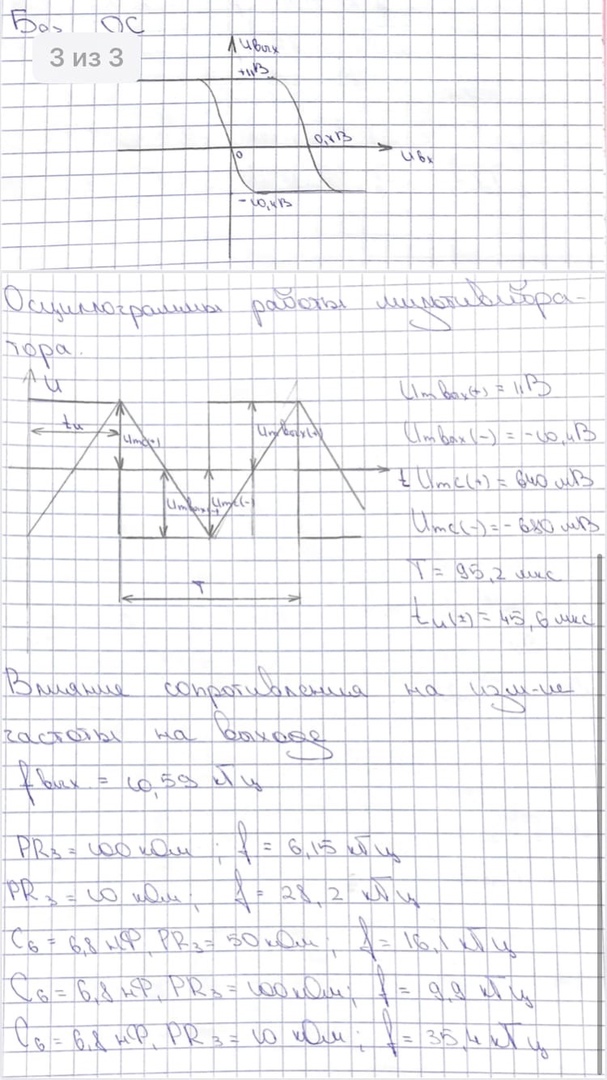 Без ОС
3 из 3
Uвых
+11В
0,4В
0
Uвх
-10,4В
Осциллограммы работы мультивибра-
тора.
U
tи
Umc(+)
Umвых(+)
Umвых(-)
Umc(-)
t
T
Umвых(+) = 11В
Umвых(-) = -10,4В
Umc(+) = 640 мВ
Umc(-) = -680 мВ
T = 95,2 мкс
tи(2) = 45,6 мкс
Влияние сопротивления на изм-ие
частоты на выходе
fвых = 10,59 кГц
PR3 = 100 кОм ; f = 6,15 кГц
PR3 = 10 кОм ; f = 28,2 кГц
C6 = 6,8 нФ, PR3 = 50 кОм ; f = 16,1 кГц
C6 = 6,8 нФ, PR3 = 100 кОм ; f = 9,9 кГц
C6 = 6,8 нФ, PR3 = 10 кОм ; f = 35,4 кГц